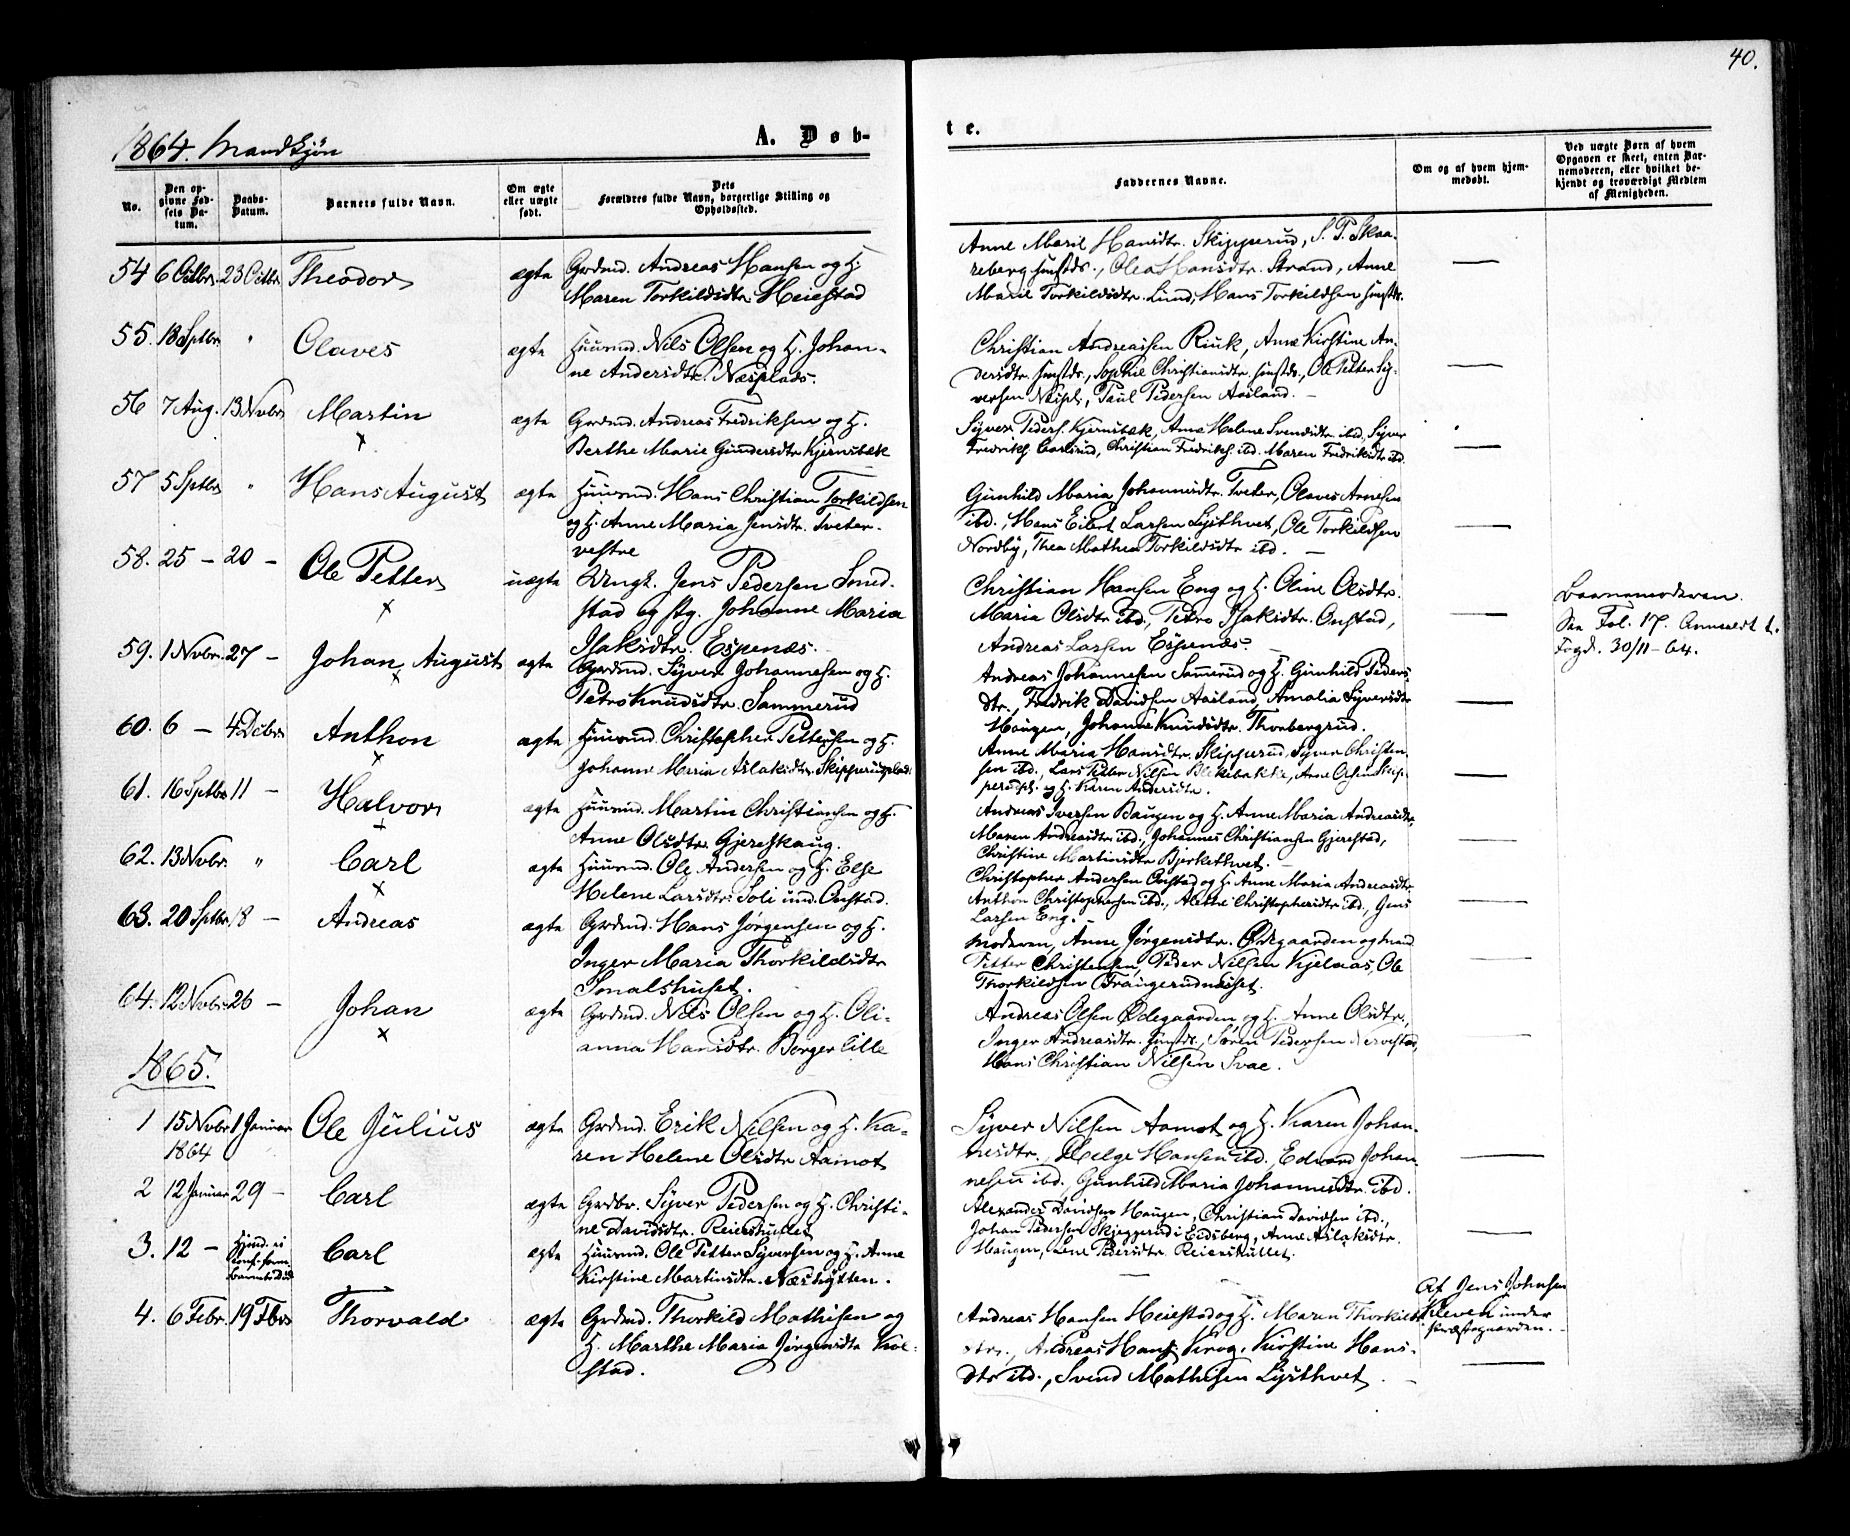 40.
1864. Mandkjøn
A. Døb-
te.
No.
Den opgivne Fødsels Datum.
Daabs-Datum.
Barnets fulde Navn.
Om ægte eller uægte født.
Dets Forældres fulde Navn, borgerlige Stilling og Opholdssted.
Faddernes Navne.
Om og af hvem hjemmedøbt.
Ved uægte Børn af hvem Opgaven er skeet, enten Barnemoderen, eller hvilket bekjendt og troværdigt Medlem af Menigheden.
54 6 Octbr. 23 Octbr. Theodor ægte Grdmd. Andreas Hansen og H.
Maren Torkildsdtr. Heiestad
Anne Marie Hansdtr. Skipperud, S. P. Skaa-
reberg, Olea Hansdtr. Strand, Anne
Marie Torkildsdtr. Lund, Hans Torkildsen
—
55. 18 Sptbr. " Olaves ægte Huusmd. Nils Olsen og H. Johan-
ne Andersdtr. Næsplads.
Christian Andreassen Riuk, Anne Kirstine An-
dersdtr., Sophie Christiansdtr., Ole Petter Sy-
versen Næspl., Paul Pedersen Aasland. —
—
56 7 Aug. 13 Nvbr. Martin ægte Grdmd. Andreas Fredriksen og H.
× Berthe Marie Gundersdtr. Kjernsbæk
Syver Peders. Kjernsbæk, Anne Helene Svendsdtr. ibd., Syver
Fredriks. Carlsrud, Christian Fredriks. ibd. Maren Fredriksdtr. ibd.
—
57 5 Sptbr. " Hans August ægte Huusmd. Hans Christian Torkildsen
og H. Anne Maria Jensdtr. Tveter-
vestre
Gunhild Maria Johannesdtr. Tveter, Olaves Arnesen
ibd., Hans Eilert Larsen Lysthvet, Ole Torkildsen
Nordby, Thea Mathea Torkildsdtr. ibd. —
—
58. 25 — 20 — Ole Petter uægte Ungk. Jens Pedersen Smed-
× stad og Pg. Johanne Maria
Isaksdtr. Espenæs.
Christian Hansen Eng og H. Oline Olsdtr.
Maria Olsdtr. ibd., Petro Isaksdtr. Onstad,
Andreas Larsen Espenæs. —
—
Barnemoderen.
See Fol. 17. Anmeldt t.
Fogd. 30/11-64.
59. 1 Nvbr. 27 — Johan August ægte Grdmd. Syver Johannesen og H.
× Petro Knudsdtr. Sammerud
Andreas Johannesen Sammerud og H. Gunhild Peders-
dtr., Fredrik Davidsen Aasland, Amalia Syversdtr.
Haugen, Johanne Knudsdtr. Thorbergrud.
—
60. 6 — 4 Dcbr. Anthon ægte Huusmd. Christopher Pettersen og H.
× Johanne Maria Aslaksdtr. Skipperudplads
Anne Maria Hansdtr. Skipperud, Syver Christen-
sen ibd., Lars Petter Nilsen Blekebakke, Arne Olsen Skip-
perudpl. og H. Karen Andersdtr.
—
61. 16 Sptbr. 11 — Halvor ægte Huusmd. Martin Christiansen og H.
× Anne Olsdtr. Gjereskaug.
Andreas Iversen Baugen og H. Anne Maria Andreasdtr.,
Maren Andreasdtr. ibd., Johannes Christiansen Gjerestad,
Christine Martinsdtr. Bjerkethvet. —
—
62. 13 Nvbr. " Carl ægte Huusmd. Ole Andersen og H. Else
× Helene Larsdtr. Soli und. Onstad.
Christopher Andersen Onstad og H. Anne Maria Andreasdtr.
Anthon Christophersen ibd., Alethe Christophersdtr. ibd., Jens
Larsen Eng. —
—
63. 20 Sptbr. 18 — Andreas ægte Grdmd. Hans Jørgensen og H.
Inger Maria Thorkildsdtr.
Smalshuset.
Moderen, Anne Jørgensdtr. Ødegaarden
Petter Christensen, Peder Nilsen Kjelaas, Ole
Thorkildsen Frangerudnæset.
—
64. 12 Nvbr. 26 — Johan ægte Grdmd. Nils Olsen og H. Oli-
× anna Hansdtr. Borger lille
Andreas Olsen Ødegaarden og H. Anne Olsdtr.,
Inger Andreasdtr., Søren Pedersen Nervestad,
Hans Christian Nilsen Svae.
—
1865.
1 15 Nvbr. 1864 1 Januar Ole Julius ægte Grdmd. Erik Nilsen og H. Ka-
ren Helene Olsdtr. Aamot
Syver Nilsen Aamot og H. Karen Johan-
nesdtr., Helge Hansen ibd., Edvard Johan-
nesen ibd., Gunhild Maria Johannesdtr. ibd.
—
2 12 Januar 29 — Carl ægte Grdbr. Syver Pedersen og H. Christi-
ne Davidsdtr. Reierskullet
Alexander Davidsen Haugen, Christian Davidsen ibd.,
Johan Pedersen Skjeggerud i Eidsberg, Anne Aslaksdtr.
Haugen, Lene Pedersdtr. Reierskullet.
—
3. 12 — Hjmd. ei Carl ægte Huusmd. Ole Petter Syversen og H. Anne
Kirstine Martinsdtr. Næshytten.
—
Af Jens Johnsen
Kleven under
Præstegaarden.
4. 6 Febr. 19 Fbr. Thorvald ægte Grdmd. Thorkild Mathisen og
H. Marthe Maria Jørgensdtr. Kol-
stad.
Andreas Hansen Heiestad og H. Maren Thorkilds-
dtr., Andreas Hans. Krog, Kirstine Hans-
dtr. ibd., Svend Mathisen Lysthvet. —
—